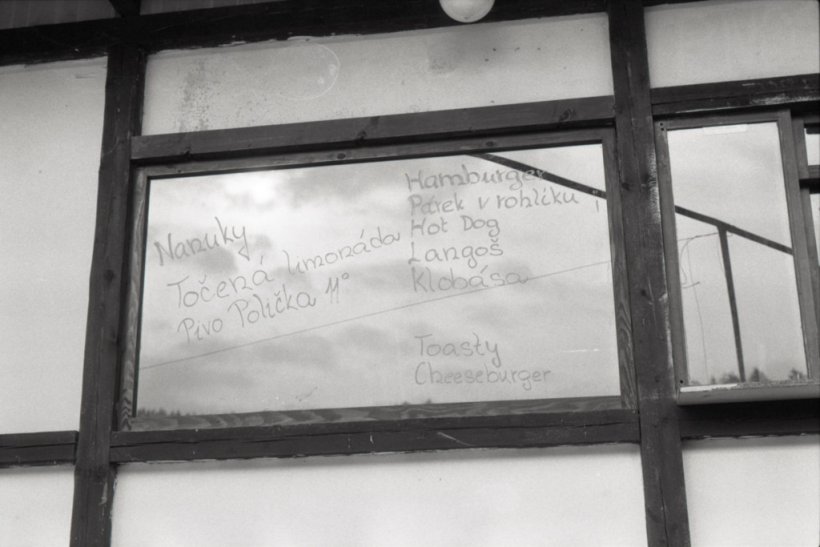 Nanuky
Točená limonáda
Pivo Polička 11°
Hamburger
Párek v rohlíku
Hot Dog
Langoš
Klobása
Toasty
Cheeseburger